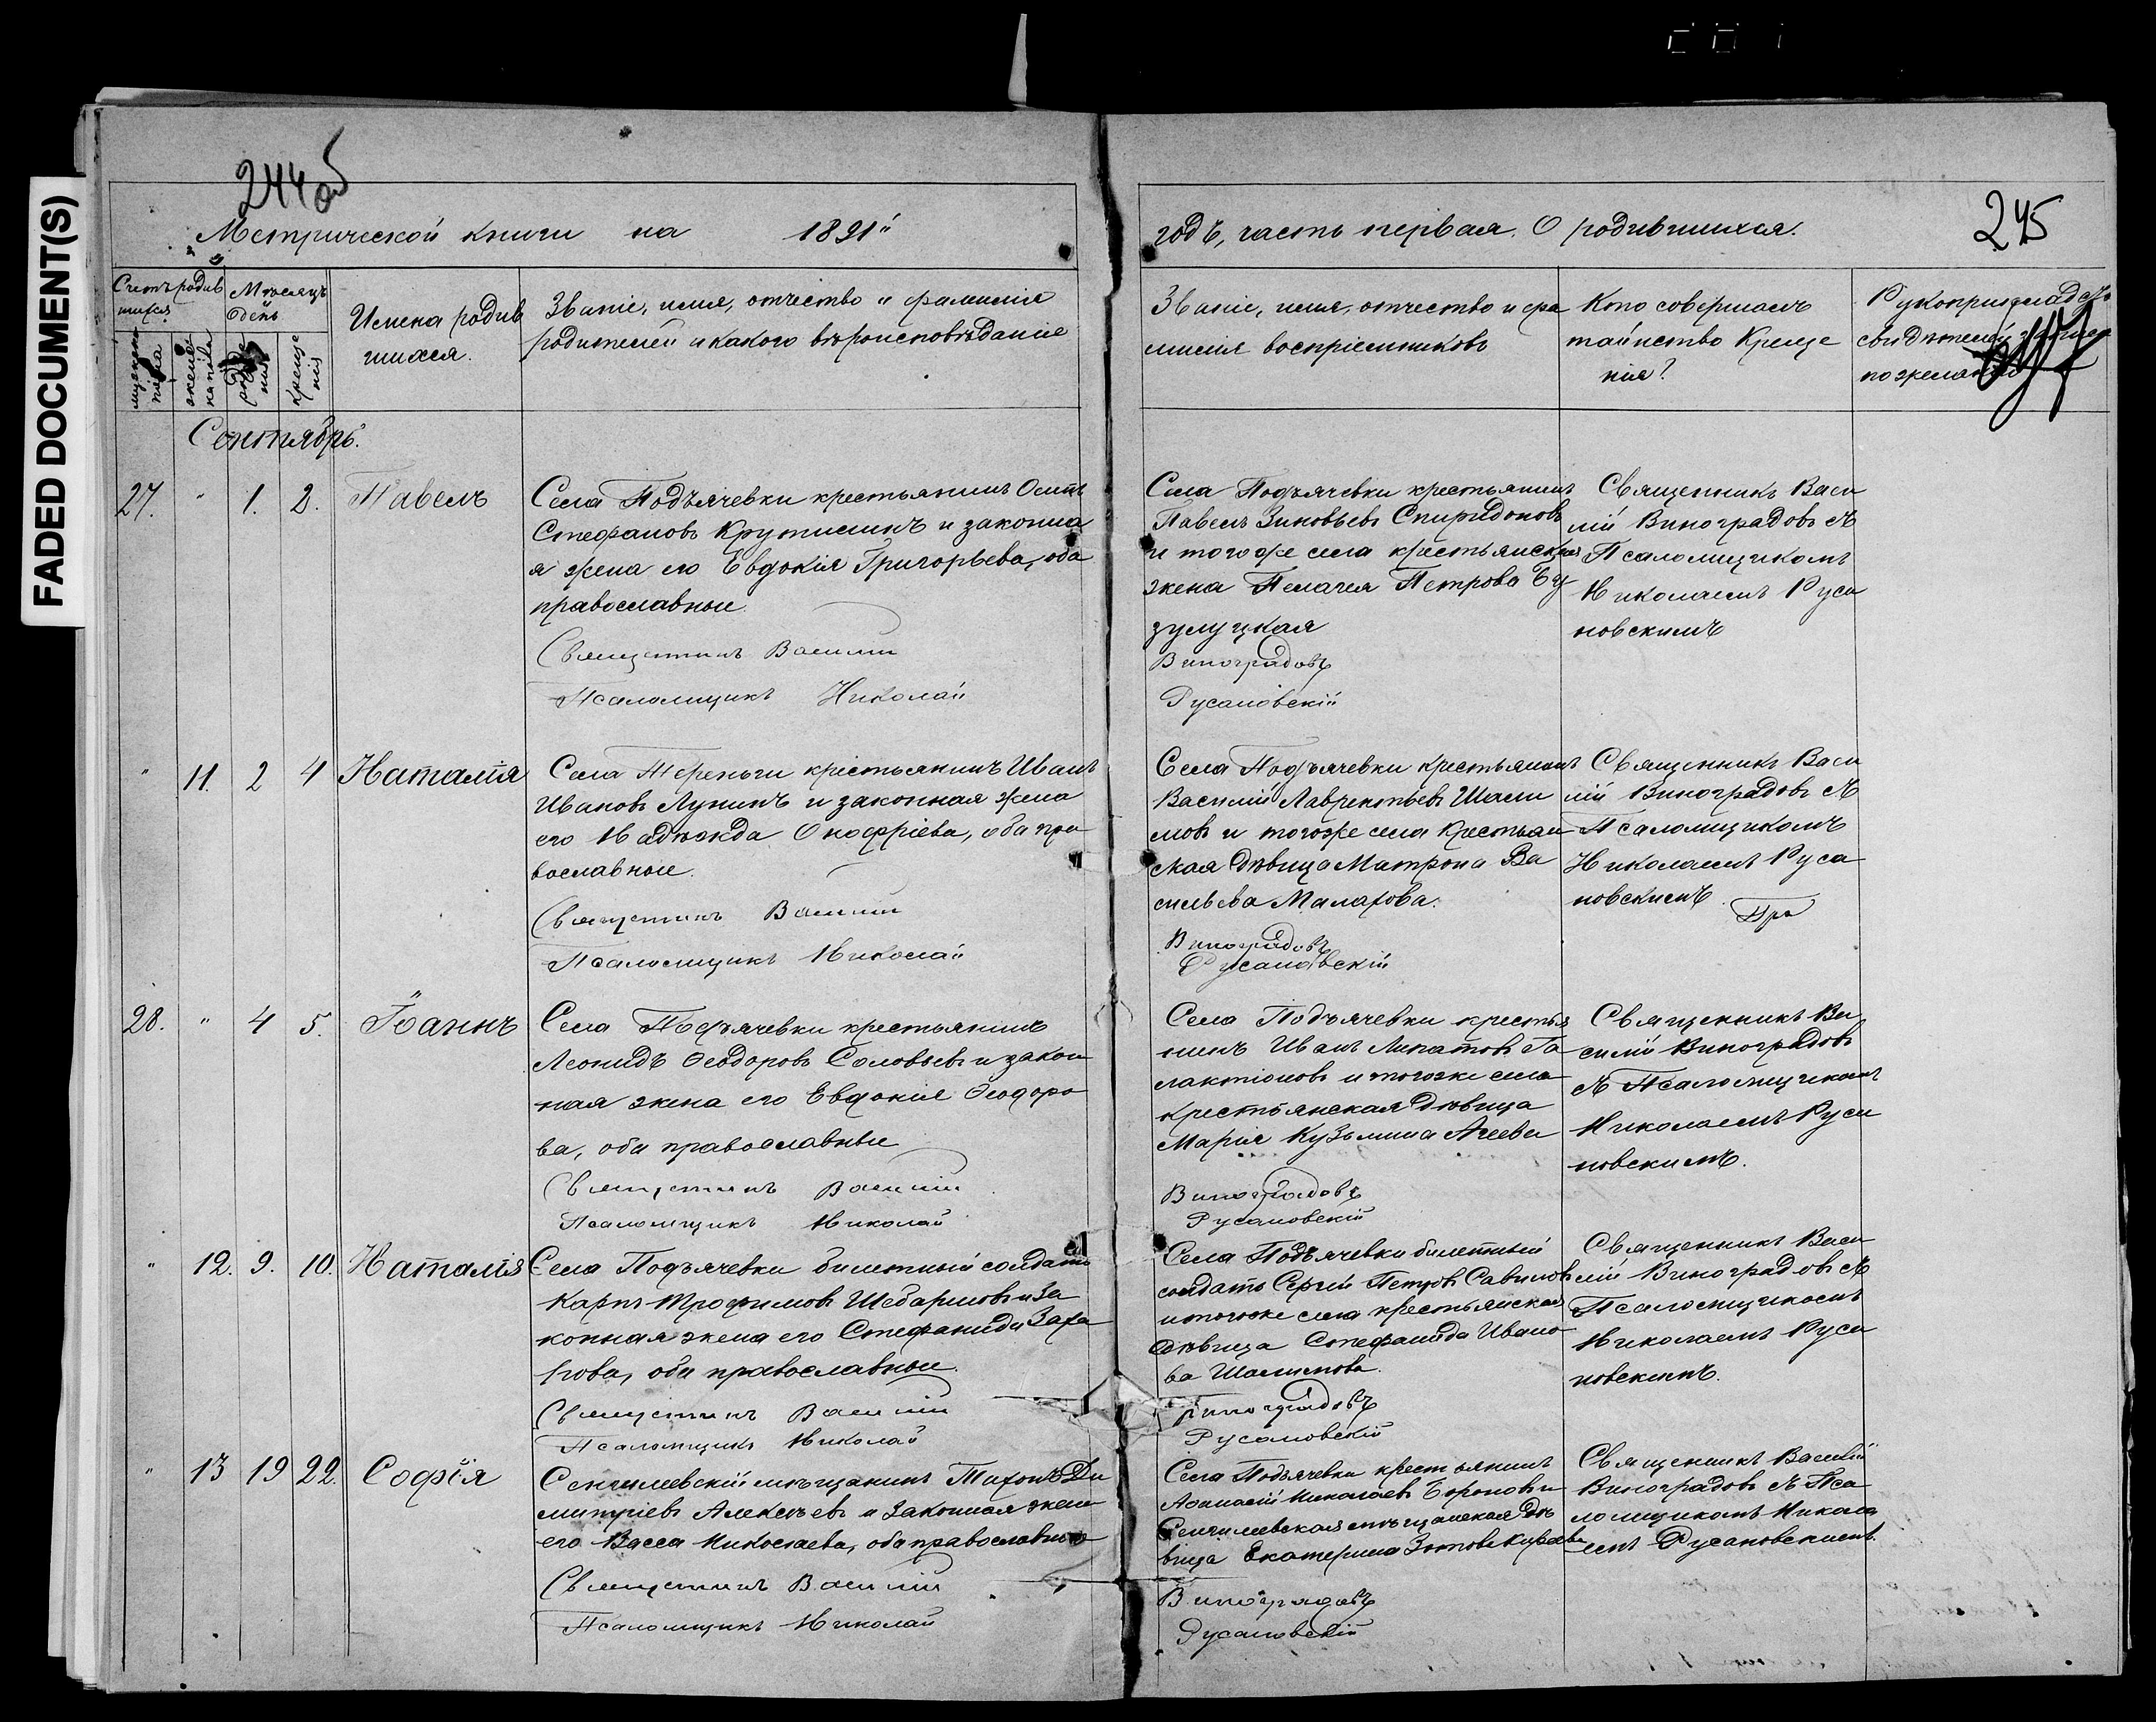 FADED DOCUMENT(S)
244 об
245
Метрической книги на 1891й
годъ, часть первая. О родившихся.
Счетъ родив
шихся
Мѣсяцъ
день
мужеска
пола
женска
рожде
нія
креще
нія
Имена родив
шихся.
Званіе, имя, отчество и фамилія
родителей и какого вѣроисповѣданія
Званіе, имя, отчество и фа
милія воспріемниковъ
Кто совершалъ
таинство Креще
нія?
Рукоприкладство
свидѣтелей
по желанію
Сентябрь.
27. " 1. 2. Павелъ
Села Подъячевки крестьянинъ Осипъ
Стефановъ Крутилинъ и законна
я жена его Евдокія Григорьева, оба
православные.
Священникъ Василій
Псаломщикъ Николай
Села Подъячевки крестьянинъ
Павелъ Зиновьевъ Спиридоновъ
и тогоже села крестьянская
жена Пелагея Петрова Бу
зулуцкая
Виноградовъ
Русановскій
Священникъ Васи
лій Виноградовъ съ
Псаломщикомъ
Николаемъ Руса
новскимъ
" 11. 2 4 Наталія
Села Тереньги крестьянинъ Иванъ
Ивановъ Лунинъ и законная жена
его Надежда Онофріева, оба пра
вославные.
Священникъ Василій
Псаломщикъ Николай
Села Подъячевки крестьянинъ
Василій Лаврентьевъ Шали
мовъ и тогоже села крестьян
ская дѣвица Матрона Ва
сильева Малахова.
Виноградовъ
Русановскій
Священникъ Васи
лій Виноградовъ съ
Псаломщикомъ
Николаемъ Руса
новскимъ.
28. " 4 5. Іоаннъ
Села Подъячевки крестьянинъ
Леонидъ Ѳеодоровъ Соловьевъ и закон
ная жена его Евдокія Ѳеодоро
ва, оба православные
Священникъ Василій
Псаломщикъ Николай
Села Подъячевки крестья
нинъ Иванъ Липатовъ Га
лактіоновъ и тогоже села
крестьянская дѣвица
Марія Кузьмина Агеева
Виноградовъ
Русановскій
Священникъ Ва
силій Виноградовъ
съ Псаломщикомъ
Николаемъ Руса
новскимъ.
" 12. 9. 10. Наталія
Села Подъячевки билетный солдатъ
Карпъ Трофимовъ Шебаршовъ и за
конная жена его Стефанида Заха
рова, оба православные.
Священникъ Василій
Псаломщикъ Николай
Села Подъячевки билетный
солдатъ Сергій Петровъ Савиновъ
и тогоже села крестьянская
дѣвица Стефанида Ивано
ва Шалимова.
Виноградовъ
Русановскій
Священникъ Васи
лій Виноградовъ съ
Псаломщикомъ
Николаемъ Руса
новскимъ.
" 13 19 22. Софія
Сенгилеевскій мѣщанинъ Тихонъ Ди
митріевъ Алексѣевъ и законная жена
его Васса Николаева, оба православные
Священникъ Василій
Псаломщикъ Николай
Села Подъячевки крестьянинъ
Николаевъ
Сенгилеевская мѣщанская дѣ
вица Екатерина
Виноградовъ
Русановскій
Священникъ Василій
Виноградовъ съ Пса
ломщикомъ Никола
емъ Русановскимъ.